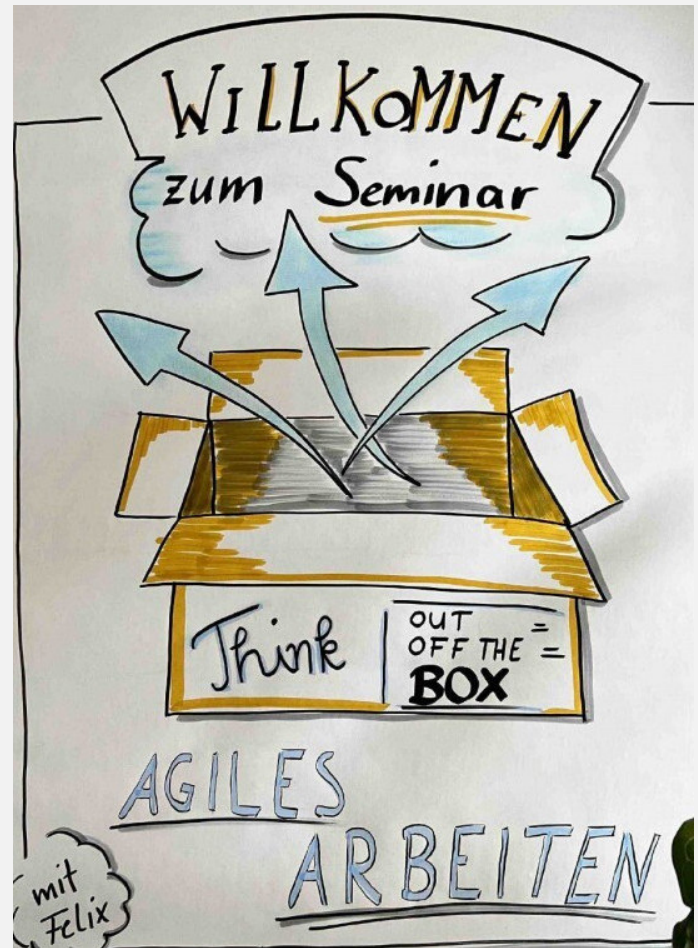 WILLKOMMEN
zum Seminar
Think
OUT
OFF THE
BOX
AGILES
ARBEITEN
mit
Felix